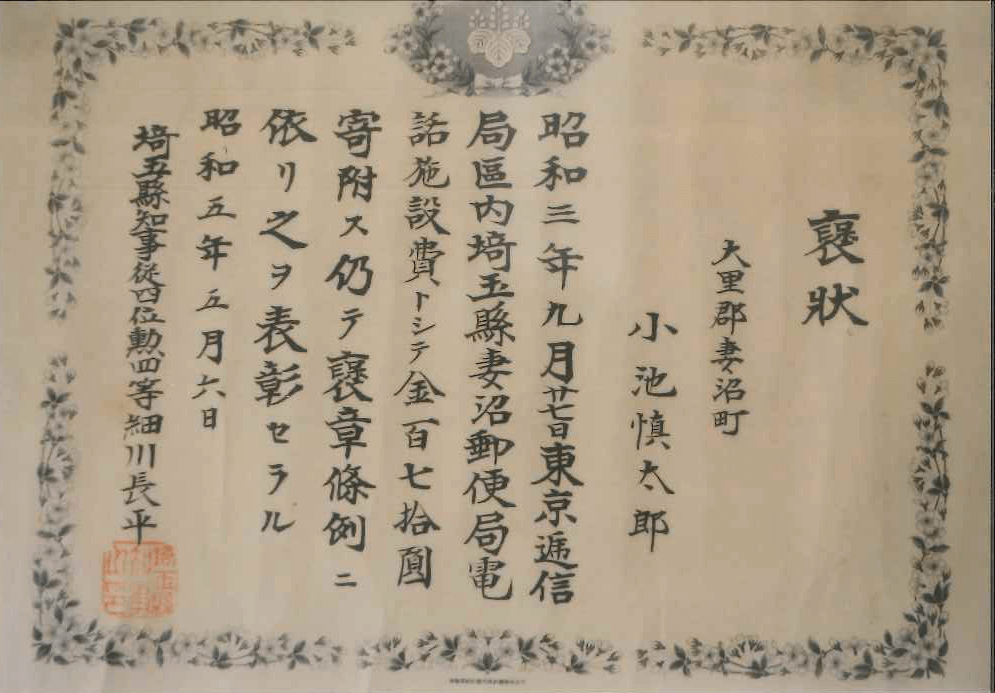 褒狀
大里郡妻沼町
小池慎太郎
昭和三年九月廿七日東京遞信
局區内埼玉縣妻沼郵便局電
話施設費トシテ金一百七拾圓
寄附ス仍テ褒章條例ニ
依リ之ヲ表彰セラル
昭和五年五月六日
埼玉縣知事從四位勲四等細川長平